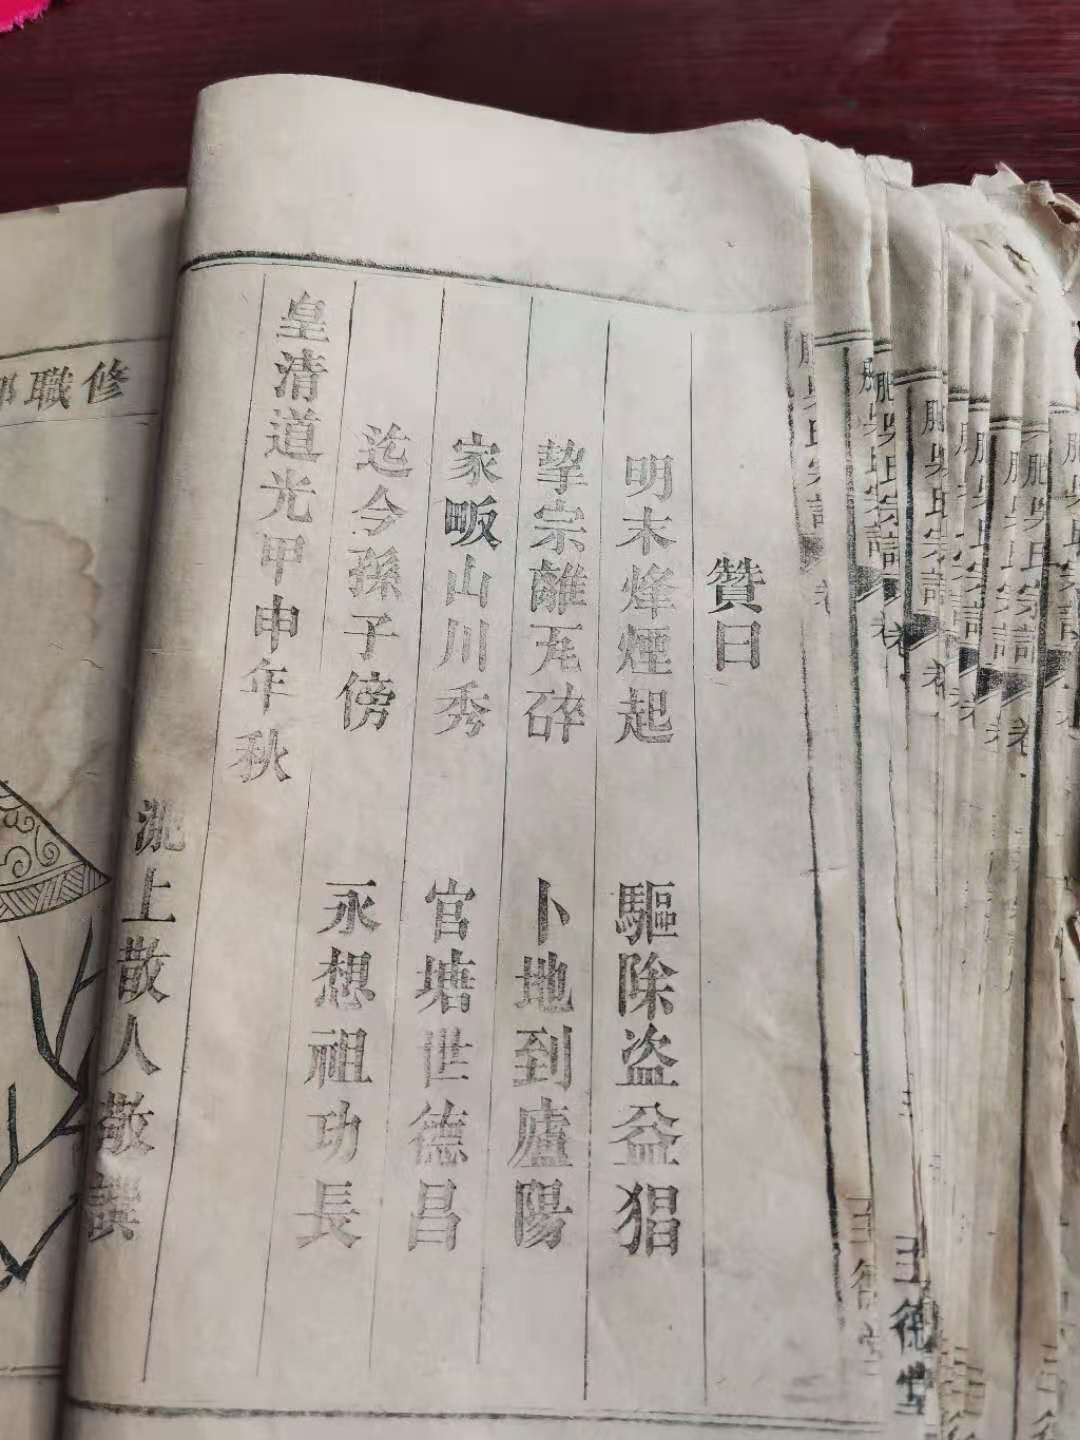 贊曰
明末烽煙起 驅除盗益猖
挈宗離瓦碎 卜地到廬陽
家畈山川秀 官塘世德昌
迄今孫子傍 永想祖功長
皇清道光甲申年秋
上散人敬譔
修職郎
肥吳氏宗譜 卷